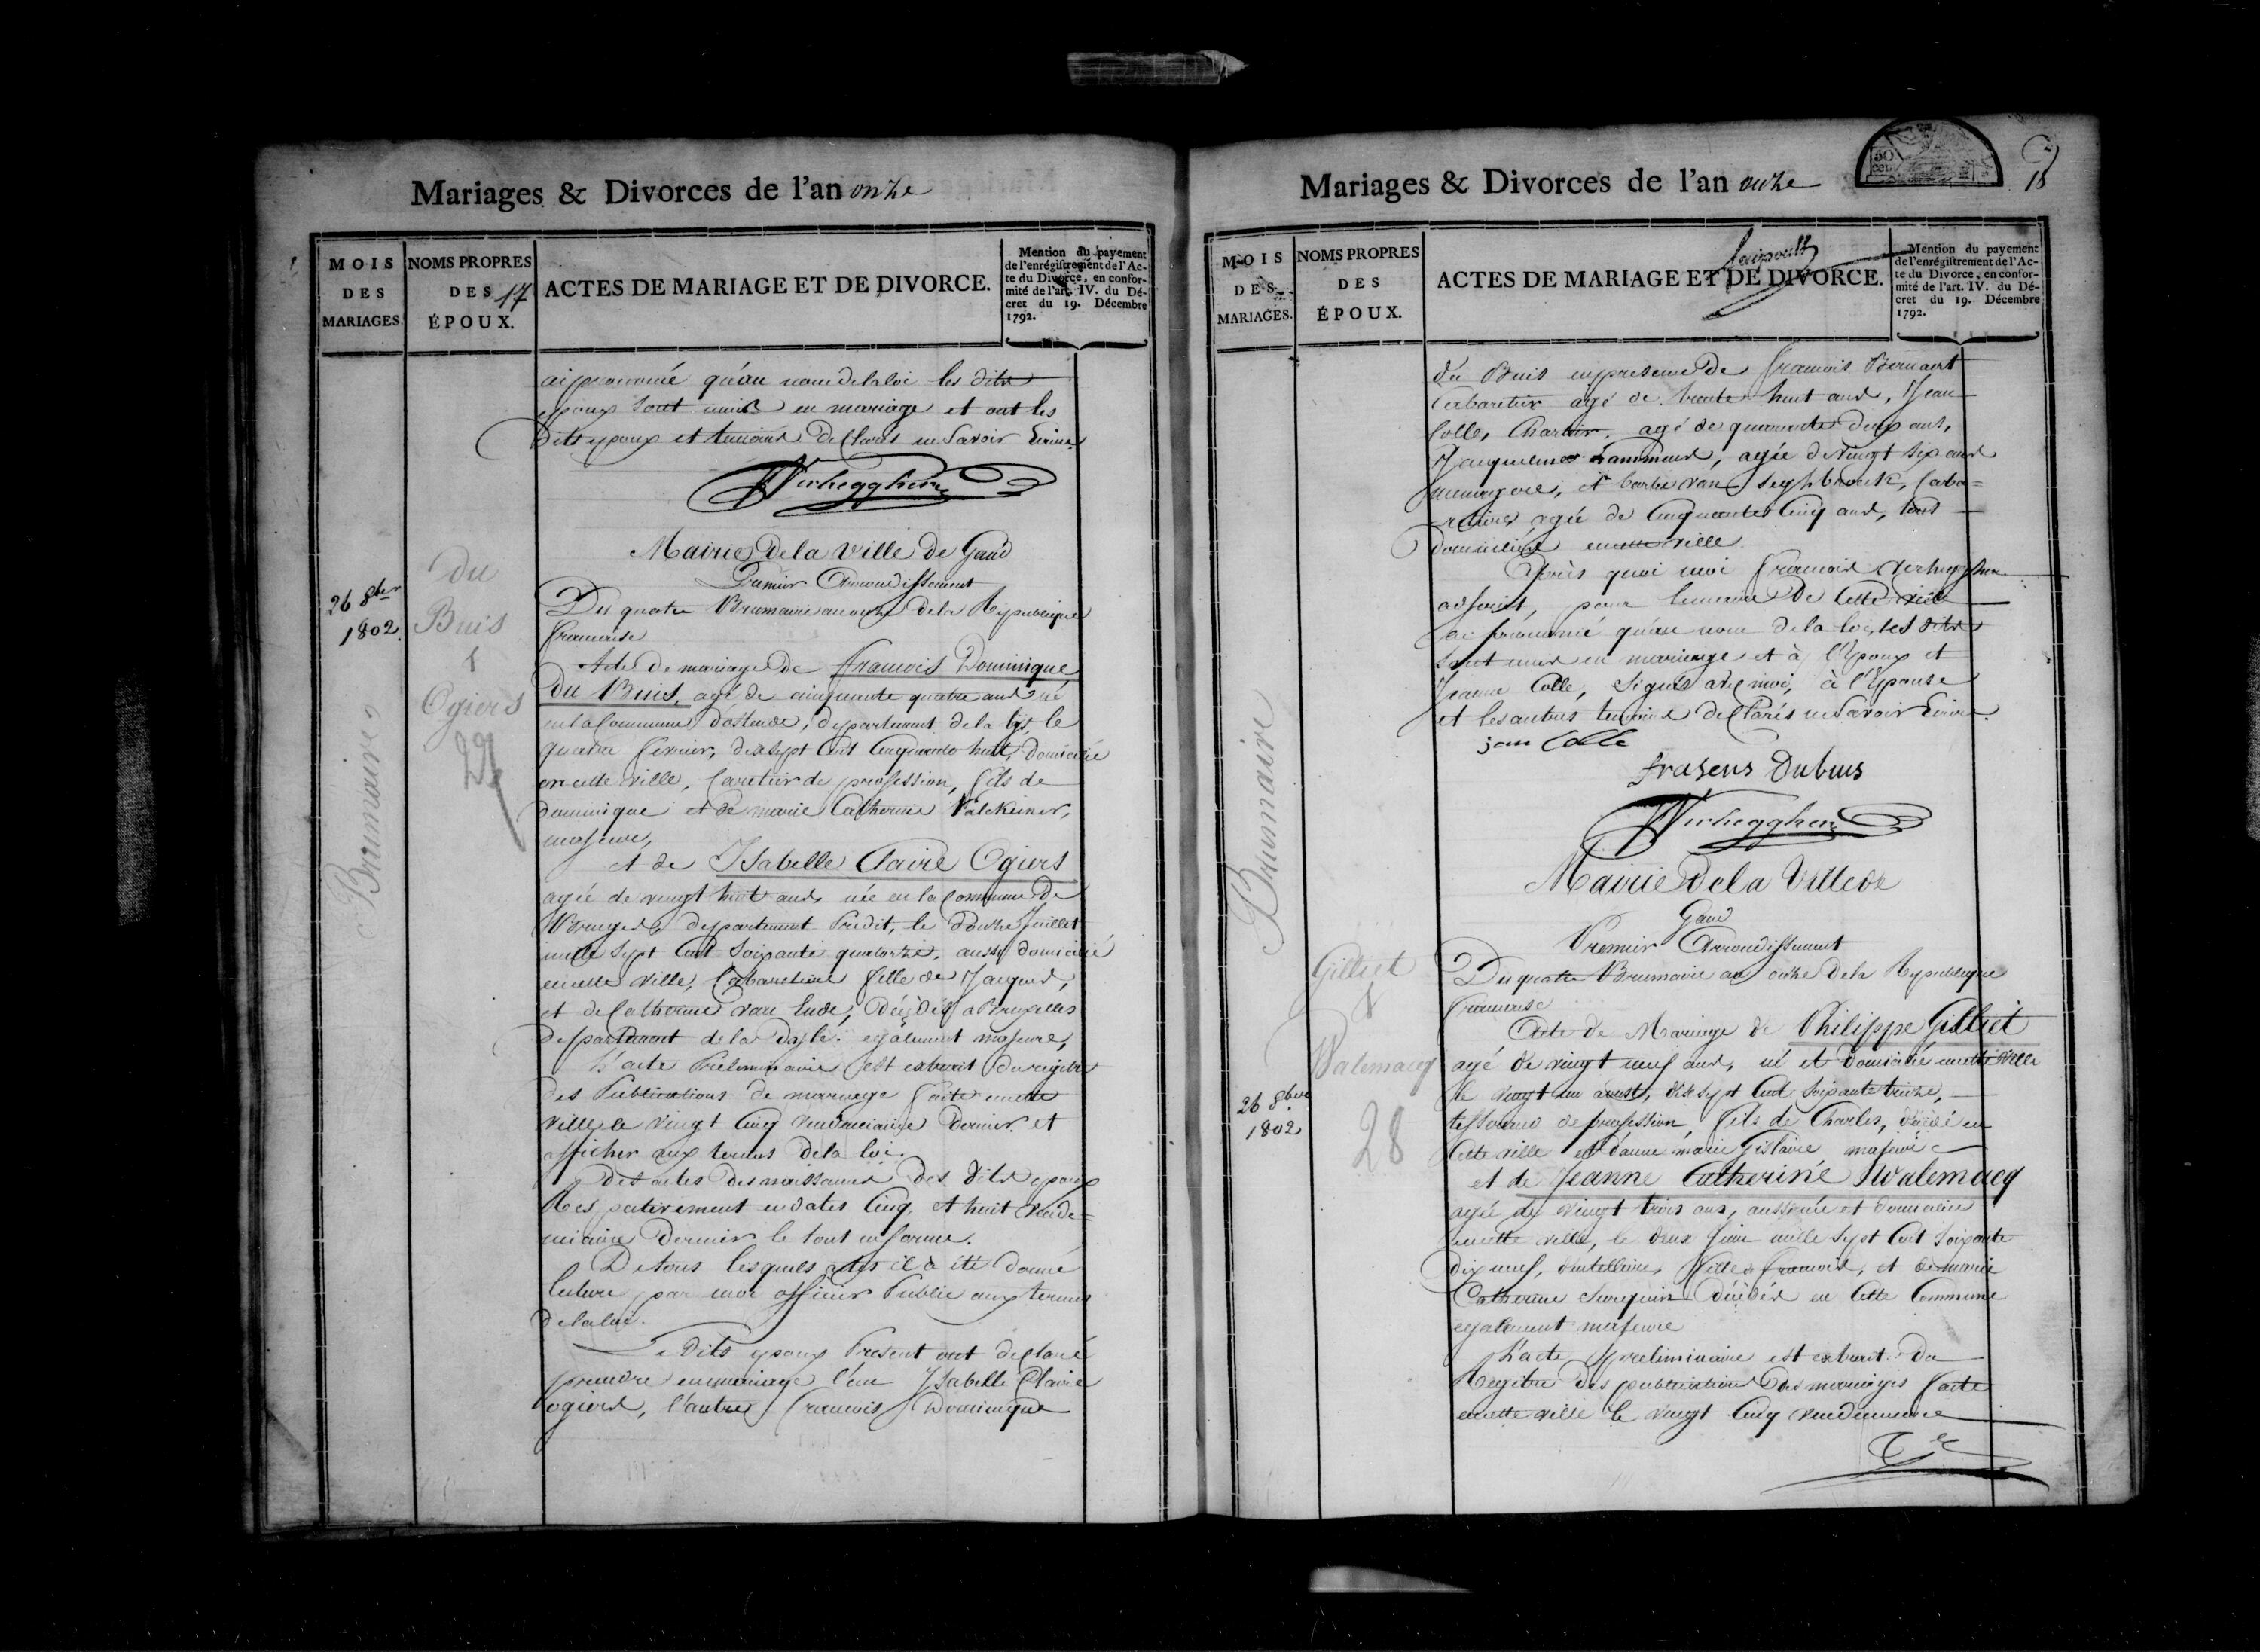 Mariages & Divorces de l'an onze
MOIS
DES
MARIAGES.
NOMS PROPRES
DES 17
ÉPOUX.
ACTES DE MARIAGE ET DE DIVORCE.
Mention du payement
de l'enrégistrement de l'Ac-
te du Divorce, en confor-
mité de l'art. IV. du Dé-
cret du 19. Décembre
1792.
ai prononcé qu'au nom de la loi les dits
epoux sont unis en mariage et ont les
dits epoux et temoins declarés ne savoir Ecrire
Verhegghen
Mairie de la Ville de Gand
Premier Arrondissement
26 8bre
1802.
Brumaire
du
Buis
&
Ogiers
27
Du quatre Brumaire an onze de la Republique
francaise
Acte de mariage de francois Dominique
du Buis, agé de cinquante quatre ans né
en la Commune d'ostende, departement de la lys, le
quatre fevrier, dix sept Cent Cinquante huit, Domicilié
en cette ville, de profession, fils de
dominique et de marie Catherine Valckener,
majeure,
et de Isabelle Claire Ogiers
agée de vingt huit ans née en la Commune de
Bruges, departement Predit, le Douze Juillet
mille sept Cent Soixante quatorze, aussi domicilié
en cette ville, Cabaretiere fille de Jacques,
et de Catherine van lude, décédés a Bruxelles
departement de la Dyle. egalement majeure,
L'acte Preliminaire est extrait du registre
des Publications de mariage faite en cette
ville le vingt Cinq Vendemiaire Dernier. et
afficher aux termes de la loi.
des actes des naissances des dits epoux
Respectivement en dates Cinq, et huit Vende=
miaire Dernier le tout en forme.
De tous lesquels actes il a été donné
lecture par moi officier Public aux termes
de la loi.
Les Dits epoux Present ont declaré
prendre en mariage l'un Isabelle Claire
ogiers, l'autre francois Dominique
Mariages & Divorces de l'an onze
18
MOIS
DES
MARIAGES.
NOMS PROPRES
DES
ÉPOUX.
ACTES DE MARIAGE ET DE DIVORCE.
Mention du payement
de l'enrégistrement de l'Ac-
te du Divorce, en confor-
mité de l'art. IV. du Dé-
cret du 19. Décembre
1792.
du Buis en presence de francois Bernaert
Cabaretier agé de trente huit ans, Jean
Colle, agé de quarante deux ans,
Jacqueline Lammens, agée de vingt six ans
menagere, et barbe van Seghbroeck, Caba=
retiere, agée de Cinquante Cinq ans, tous
Domiciliés en cette ville.
Après quoi moi francois Verhegghen
adjoint, pour le maire de Cette ville
ai prononcé qu'au nom de la loi, les dits
sont unis en mariage et à l'Epoux et
Jeanne Colle, Signés avec moi, à l'Epouse
et les autres temoins declarés ne savoir Ecrire.
jean Colle
fraseus Dubuis
Verhegghen
Mairie de la Ville de
Gand
Premier Arrondissement
Brumaire
Gilliet
&
Walemacq
26 8bre
1802
28
Du quatre Brumaire an onze de la Republique
francaise
Acte de Mariage de Philippe Gilliet
agé de vingt neuf ans, né et Domicilié en cette ville
le vingt un aoust, dix sept Cent Soixante treize,
tisserand de profession, fils de Charles, décédé en
Cette ville et d'anne marie Gislaine majeure
et de Jeanne Catherine Walemacq
agée de vingt trois ans, aussi née et domiciliée
en cette ville, le deux Juin mille sept Cent Soixante
dix neuf, dentelliere, fille de francois, et de marie
Catherine décédés en Cette Commune
egalement majeure
L'acte preliminaire est extrait du
Registre des publications des mariages faite
en cette ville le vingt Cinq Vendemiaire